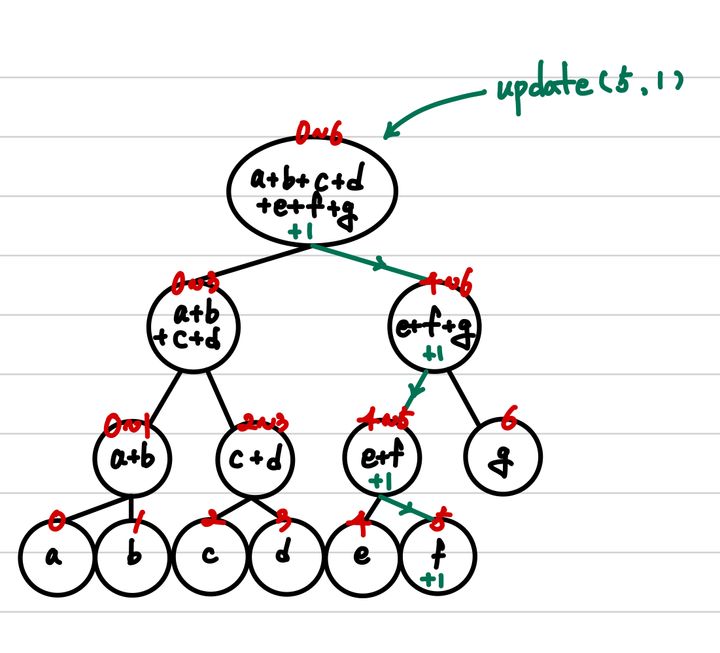 update(5,1)
0~6
a+b+c+d
+e+f+g
+1
0~3
a+b
+c+d
4~6
e+f+g
+1
0~1
a+b
2~3
c+d
4~5
e+f
+1
6
g
0
a
1
b
2
c
3
d
4
e
5
f
+1